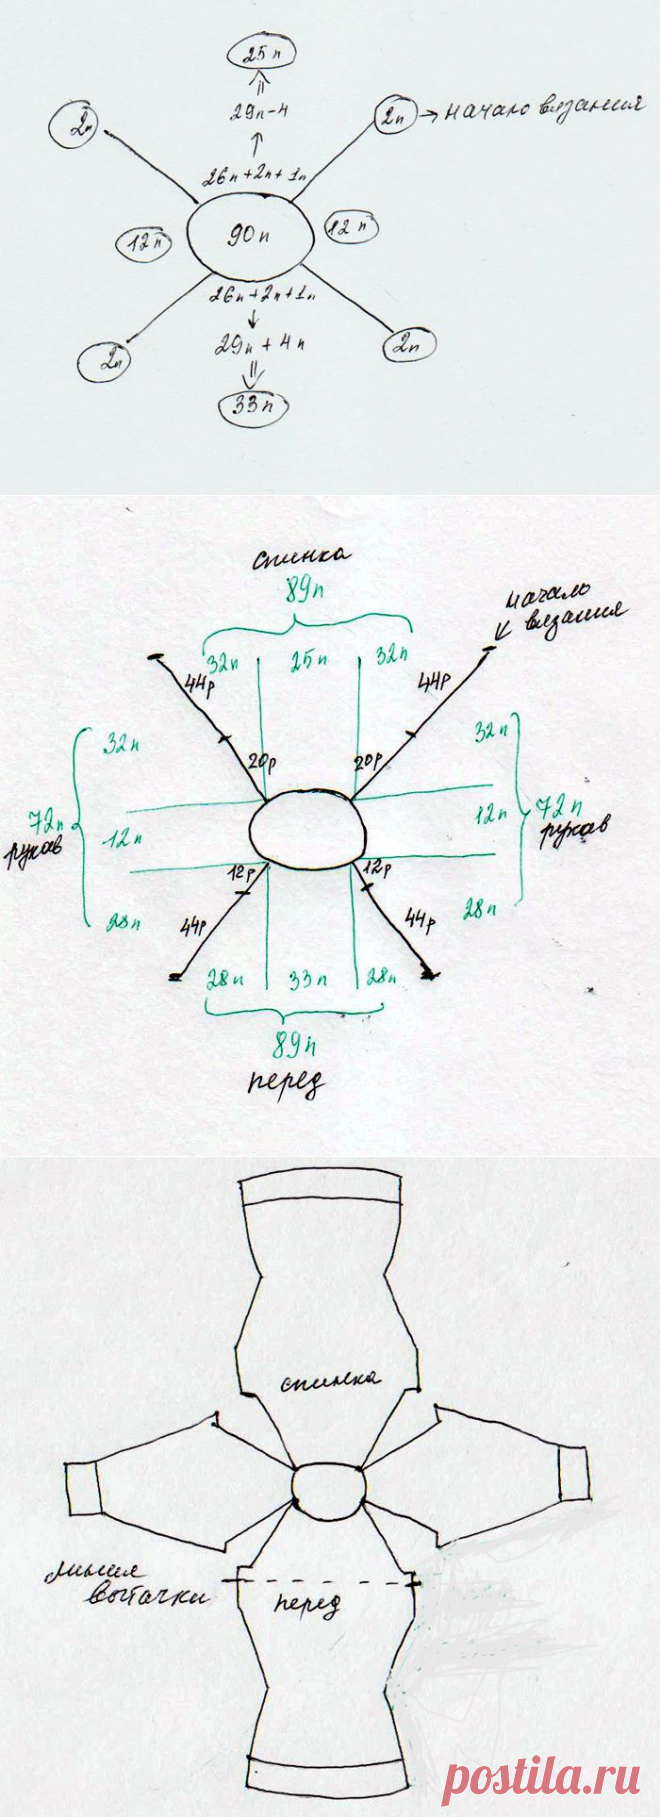 25п
29п-4
2п
2п → начало вязания
26п+2п+1п
12п
90п
12п
26п+2п+1п
29п+4п
2п
2п
33п
спинка
89п
начало
вязания
32п
25п
32п
44р
44р
32п
32п
20р
20р
72п
рукав
12п
12п
72п
рукав
12р
12р
28п
28п
44р
44р
28п
33п
28п
89п
перед
спинка
линия
вытачки
перед
postila.ru